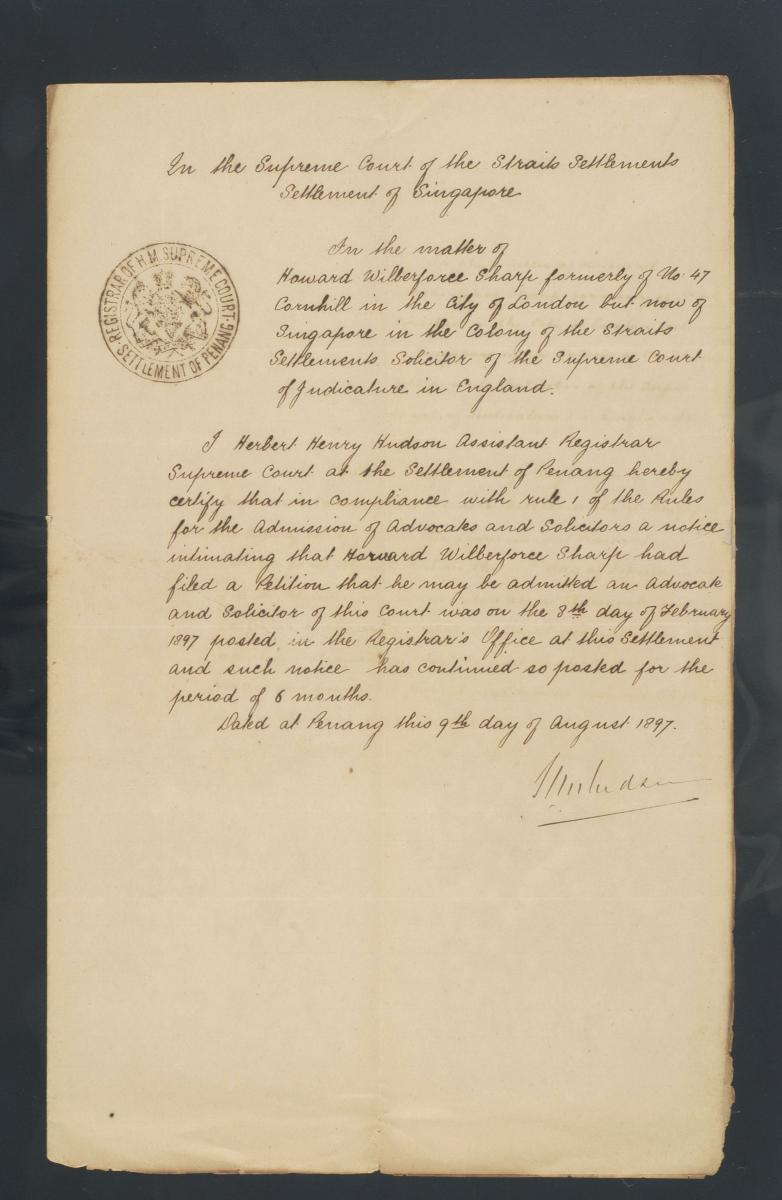 In the Supreme Court of the Straits Settlements
Settlement of Singapore
REGISTRAR OF H.M. SUPREME COURT.
SETTLEMENT OF PENANG.
In the matter of
Howard Wilberforce Sharp formerly of No 47
Cornhill in the City of London but now of
Singapore in the Colony of the Straits
Settlements Solicitor of the Supreme Court
of Judicature in England.
I Herbert Henry Hudson Assistant Registrar
Supreme Court at the Settlement of Penang hereby
certify that in compliance with rule 1 of the Rules
for the Admission of Advocates and Solicitors a notice
intimating that Howard Wilberforce Sharp had
filed a Petition that he may be admitted an Advocate
and Solicitor of this Court was on the 8th day of February
1897 posted in the Registrar's Office at this Settlement
and such notice has continued so posted for the
period of 6 months.
Dated at Penang this 9th day of August 1897.
HHHudson